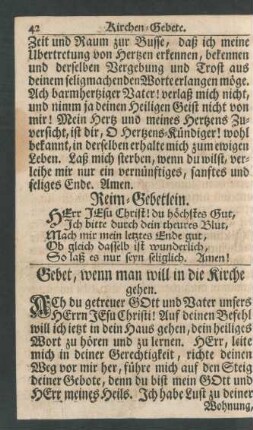 42 Kirchen-Gebete.
Zeit und Raum zur Busse, daß ich meine
Ubertretung von Hertzen erkennen, bekennen
und derselben Vergebung und Trost aus
deinem seligmachenden Worte erlangen möge.
Ach barmhertziger Vater! verlaß mich nicht,
und nimm ja deinen Heiligen Geist nicht von
mir! Mein Hertz und meines Hertzens Zu-
versicht, ist dir, O Hertzens-Kündiger! wohl
bekannt, in derselben erhalte mich zum ewigen
Leben. Laß mich sterben, wenn du wilst, ver-
leihe mir nur ein vernünftiges, sanftes und
seliges Ende. Amen.
Reim-Gebetlein.
HErr JEsu Christ! du höchstes Gut,
Ich bitte durch dein theures Blut,
Mach mir mein letztes Ende gut,
Ob gleich dasselb ist wunderlich,
So laß es nur seyn seliglich. Amen!
Gebet, wenn man will in die Kirche
gehen.
ACh du getreuer GOtt und Vater unsers
HErrn JEsu Christi! Auf deinen Befehl
will ich jetzt in dein Haus gehen, dein heiliges
Wort zu hören und zu lernen. HErr, leite
mich in deiner Gerechtigkeit, richte deinen
Weg vor mir her, führe mich auf den Steig
deiner Gebote, denn du bist mein GOtt und
HErr meines Heils. Ich habe Lust zu deiner
Wohnung,